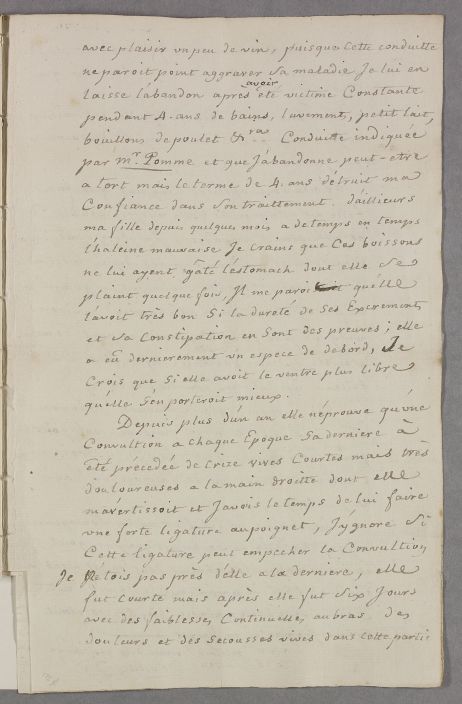 avec plaisir un peu de vin, puisque Cette conduitte
ne paroit point aggraver Sa maladie Je lui en
laisse l'abandon après avoir été victime Constante
pendant 4. ans de bains, lavement, petit lait,
bouillons de poulet &ra .. Conduitte indiquée
par mr. Pomme et que J'abandonne peut-etre
a tort mais le terme de 4. ans détruit ma
Confiance dans Son traittement. d'ailleurs
ma fille depuis quelques mois a de temps en temps
l'haleine mauvaise Je Crains que Ces boissons
ne lui ayent gaté l'estomach dont elle Se
plaint quelque fois, Il me paroit quélle
l'avoit très bon Si la dureté de Ses Excrement,
et Sa Constipation en Sont des preuves; elle
a eu dernierement un espece de debord, Je
Crois que Si elle avoit le ventre plus libre
quélle S'en porteroit mieux.
Depuis plus d'un an elle n'éprouve qu'une
Convultion a chaque Epoque Sa derniere à
été précédée de Crize vives Courtes mais très
douloureuses a la main droitte dont elle
m'avertissoit et J'avois le temps de lui faire
une forte ligature au poignet, J'ygnore Si
Cette ligature peut empecher la Convultion,
Je N'etois pas près d'elle a la derniere, elle
fut Courte mais après elle fut Six Jours
avec des faiblesses Continuelles, au bras des
douleurs et des Secousses vives dans Cette partie